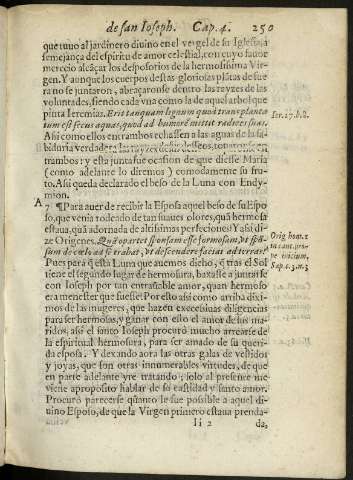 de san Ioseph. Cap. 4. 250
que tuuo al jardinero diuino en el vergel de su Iglesia, a
semejança del espiritu de amor celestial, con cuyo fauor
merecio alcãçar los desposorios de la hermosissima Vir-
gen. Y aunque los cuerpos destas gloriosas plãtas de sue
ra no se juntaron, abraçaronse dentro las rayzes de las
voluntades, siendo cada vna como la de aquel arbol que
pinta Ieremias. Erit tanquam lignum quod transplanta
tum est secus aquas, quod ad humorẽ mittet radices suas.
Ier. 17. b. 8.
Assi como ellos entrambos echassen a las aguas de la sa-
biduria verdadera las rayzes de sus desseos, en
trambos: y esta juntasse ocasion de que diesse Maria
(como adelante lo diremos) comodamente su fru-
to. Assi queda declarado el beso de la Luna con Endy-
mion.
A 7 ¶ Para auer de recibir la Esposa aquel beso de su Espo
so, que venia rodeado de tan suaues olores, quã hermosa
estaua, quã adornada de altissimas perfeciones! Y assi di-
ze Origenes. Quã oportet sponsam esse formosam, vt spõ-
sum de cœlo ad se trahat, vt descendere faciat ad terras!
Orig. hom. 2
in cant. pro-
pe initium,
Sap. 1. 3. n. 3.
Pues para q̃ esta Luna que auemos dicho, q̃ tras el Sol
tiene el segundo lugar de hermosura, baxasse a juntarse
con Ioseph por tan entrañable amor, quan hermoso
era menester que fuesse! Por esto assi como arriba dixi-
mos de las mugeres, que hazen excessiuas diligencias
para ser hermosas, y ganar con ello el amor de sus ma-
ridos, assi el santo Ioseph procurò mucho arrearse de
la espiritual hermosura, para ser amado de su queri-
da esposa. Y dexando aora las otras galas de vestidos
y joyas, que son otras innumerables virtudes, de que
en parte adelante yre tratando; solo al presente me
viene aproposito hablar de su castidad y santo amor.
Procurò parecerse quanto le fue possible a aquel di-
uino Esposo, de que la Virgen primero estaua prenda-
Ii 2 da,